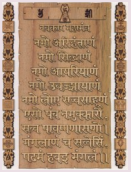 णमो अरिहंताणं
णमो सिद्धाणं
णमो आयरियाणं
णमो उवज्झायाणं
णमो लोए सव्वसाहूणं
एसो पंच णमुक्कारो
सव्व पावप्पणासणो
मंगलाणं च सव्वेसिं
पढमं हवइ मंगलं ।।